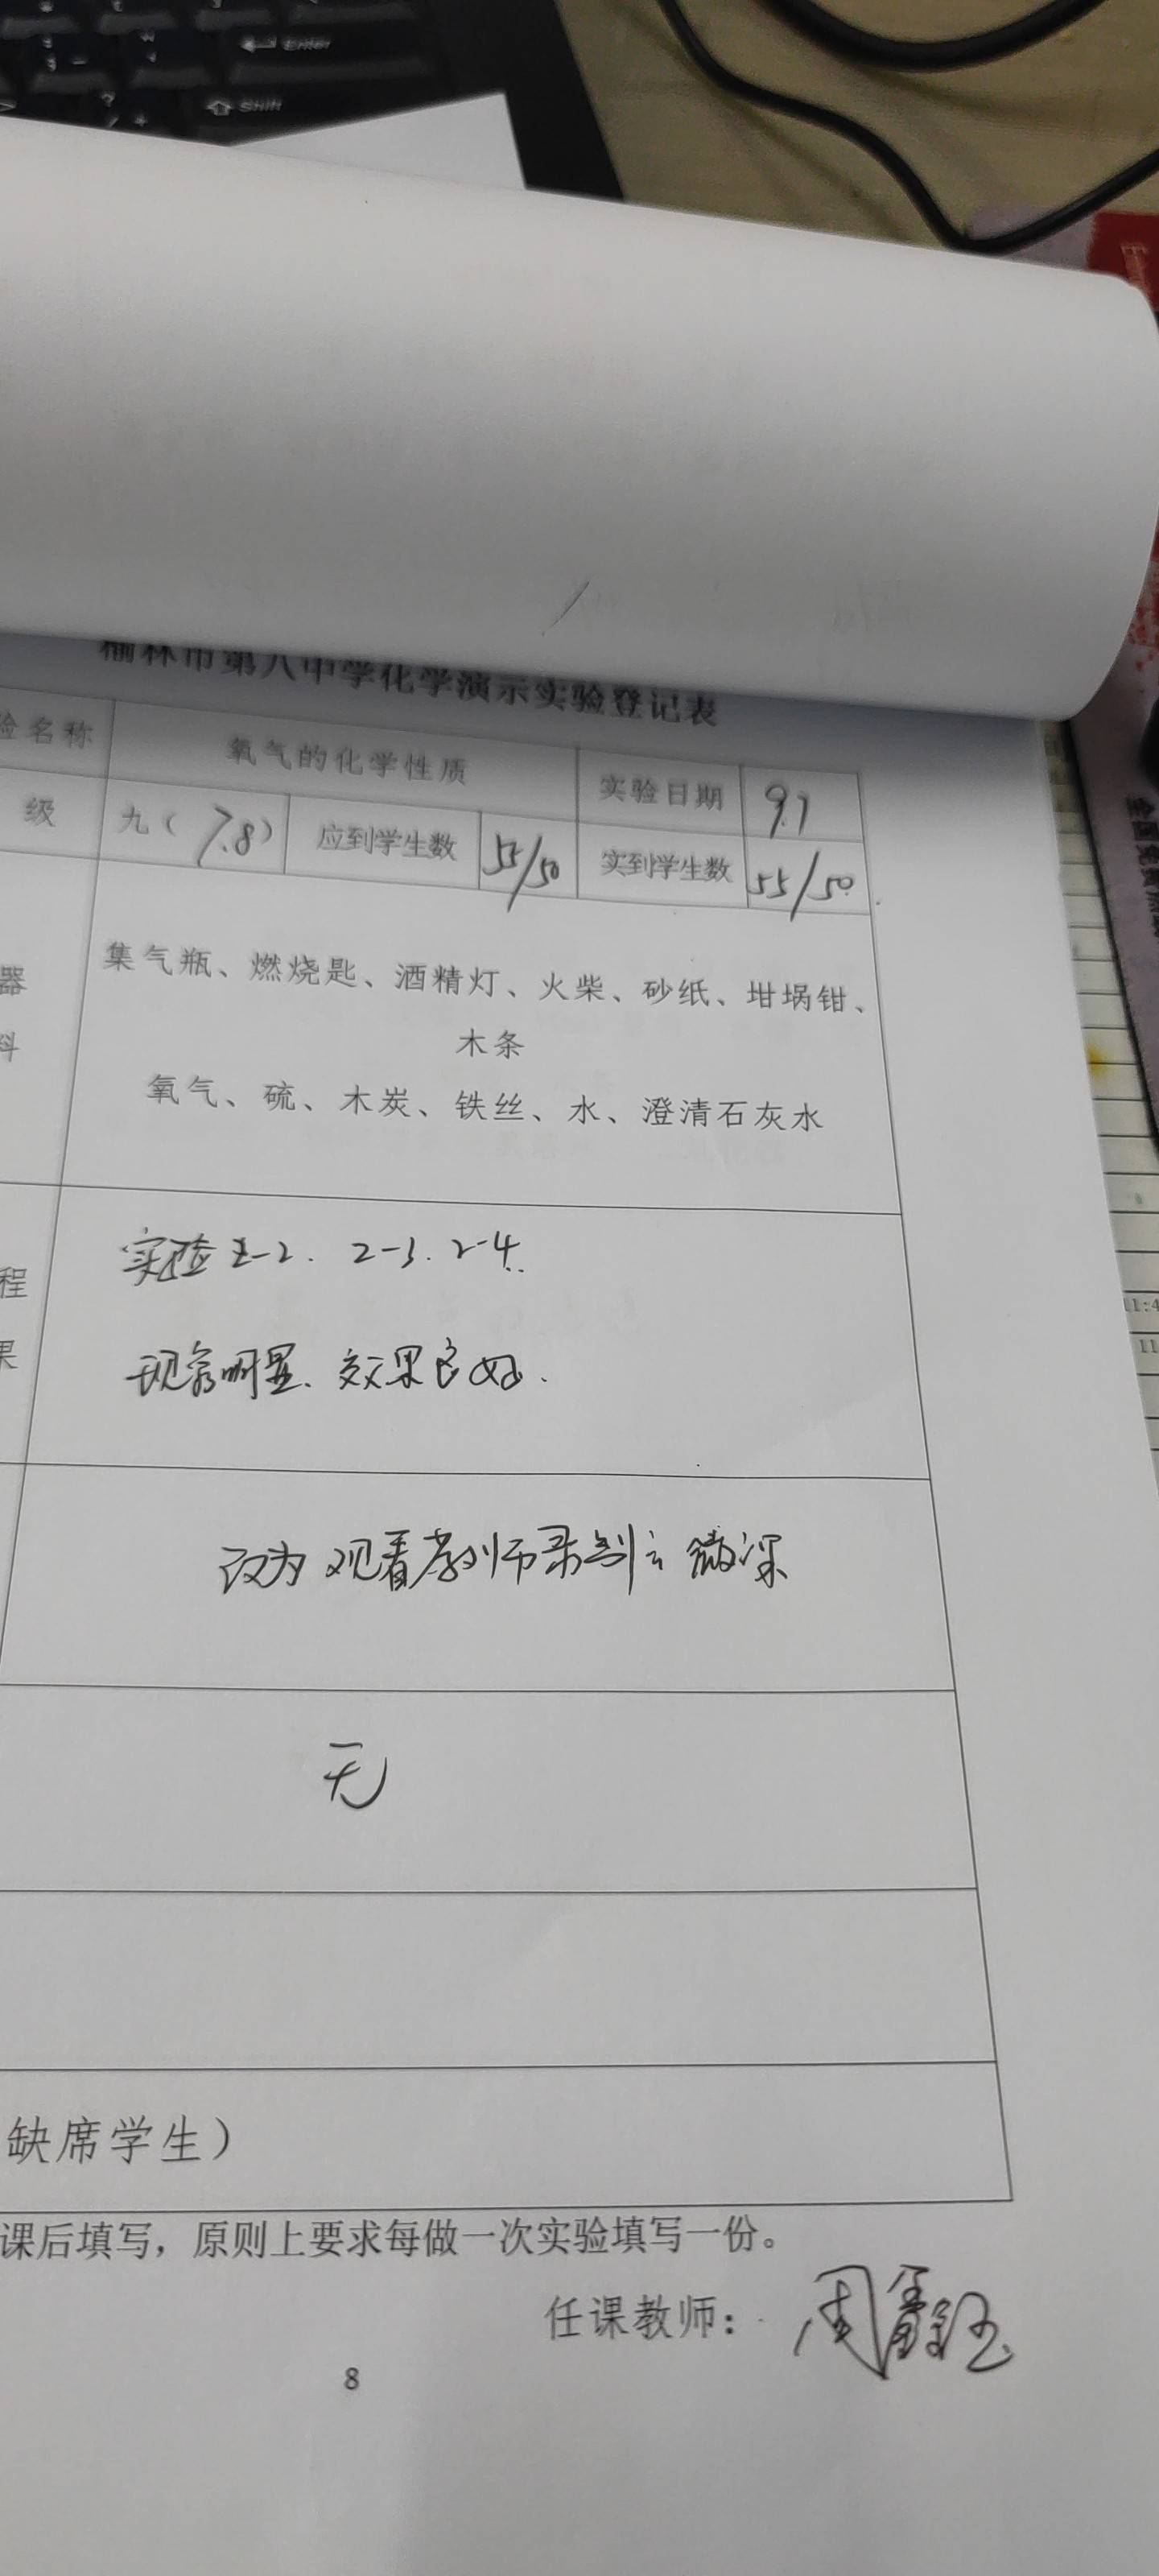 Enter
Shift
榆林市第八中学化学演示实验登记表
验名称 氧气的化学性质 实验日期 9.7
级 九(7.8) 应到学生数 55/50 实到学生数 55/50
器 集气瓶、燃烧匙、酒精灯、火柴、砂纸、坩埚钳、
料 木条
氧气、硫、木炭、铁丝、水、澄清石灰水
程 实验2-2. 2-3. 2-4.
果 现象明显、效果良好.
改为观看教师录制之微课
无
缺席学生)
课后填写,原则上要求每做一次实验填写一份。
任课教师: 周
8